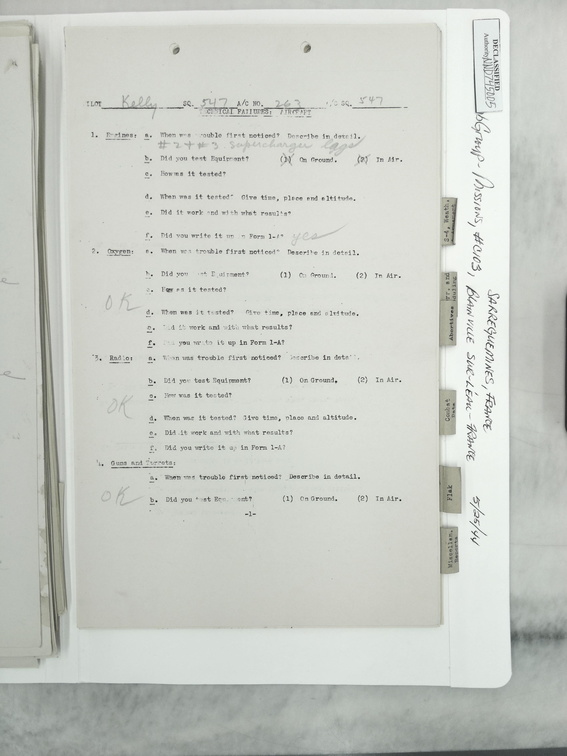 DECLASSIFIED
Authority NND745005
Kelly SQ. 547 A/C NO. 263 A/C SQ. 547
FAILURES: AIRCRAFT
1. Engines: a. When was trouble first noticed? Describe in detail.
#2 + #3 Supercharger lags
b. Did you test Equipment? (1) On Ground. (2) In Air.
c. How was it tested?
d. When was it tested? Give time, place and altitude.
e. Did it work and with what results?
f. Did you write it up in Form 1-A? yes
2. Oxygen: a. When was trouble first noticed? Describe in detail.
b. Did you test Equipment? (1) On Ground. (2) In Air.
c. How as it tested?
OK
d. When was it tested? Give time, place and altitude.
e. Did it work and with what results?
f. you write it up in Form 1-A?
3. Radio: a. When was trouble first noticed? Describe in detail.
b. Did you test Equipment? (1) On Ground. (2) In Air.
c. How was it tested?
OK
d. When was it tested? Give time, place and altitude.
e. Did it work and with what results?
f. Did you write it up in Form 1-A?
4. Guns and Turrets:
a. When was trouble first noticed? Describe in detail.
OK
b. Did you test Equipment? (1) On Ground. (2) In Air.
-1-
Group - Missions, #C103, SARREGUEMINES, FRANCE
BLAINVILLE SUR-L'EAU - FRANCE 5/25/44
Abortives
Combat
Data
Flak
Miscellan.
Reports